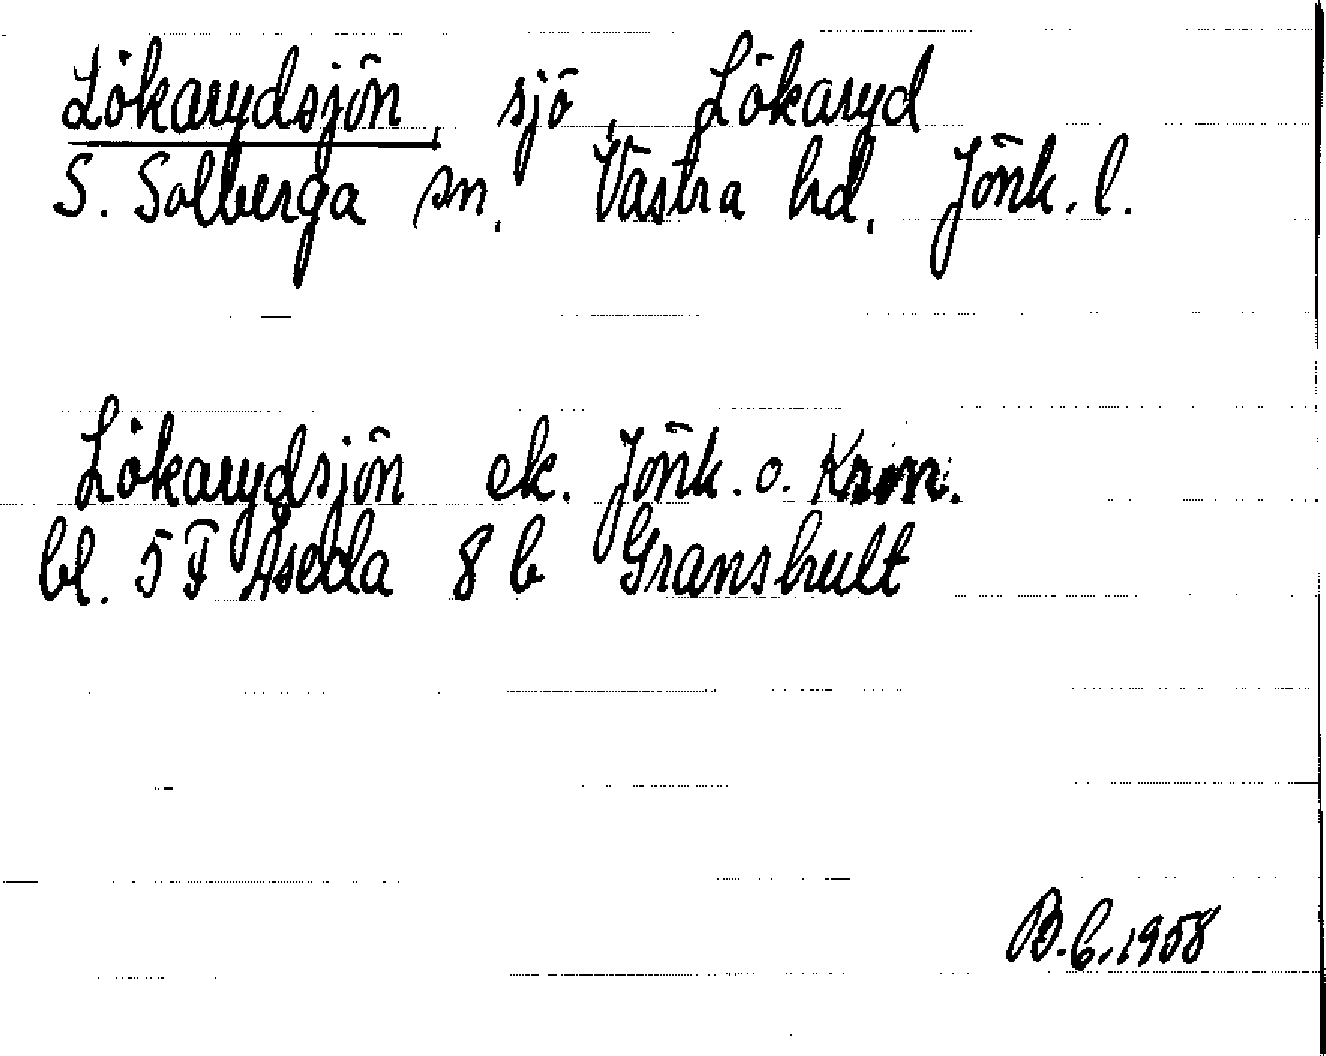 Lökarydsjön, sjö, Lökaryd
S. Solberga sn. Västra hd. Jönk. l.
Lökarydsjön ek. Jönk. o. Kron.
bl. 5 F Åseda 8 b Granshult
B.G.1958